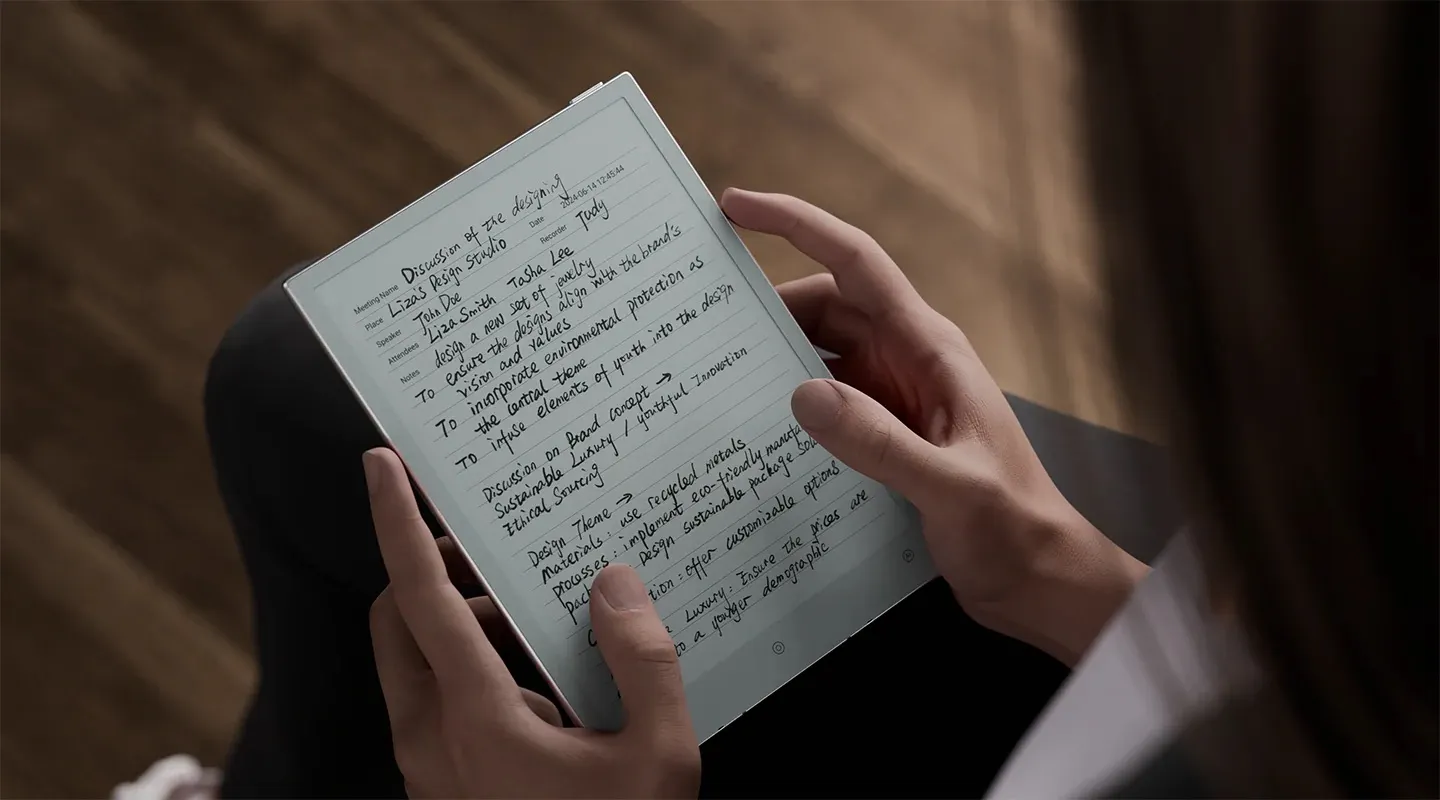 Meeting Name Discussion of the designing
Place Liza's Design Studio Date 2024-06-14 12:45:44
Speaker John Doe Recorder Judy
Attendees Liza Smith Tasha Lee
Notes design a new set of jewelry
To ensure the designs align with the brand's
vision and values
To incorporate environmental protection as
the central theme
To infuse elements of youth into the design
Discussion on Brand concept →
Sustainable Luxury / youthful Innovation
Ethical Sourcing
Design Theme →
Materials : use recycled metals
processes : implement eco-friendly
Design sustainable package
: offer customizable options
Luxury : Ensure the prices are
to a younger demographic